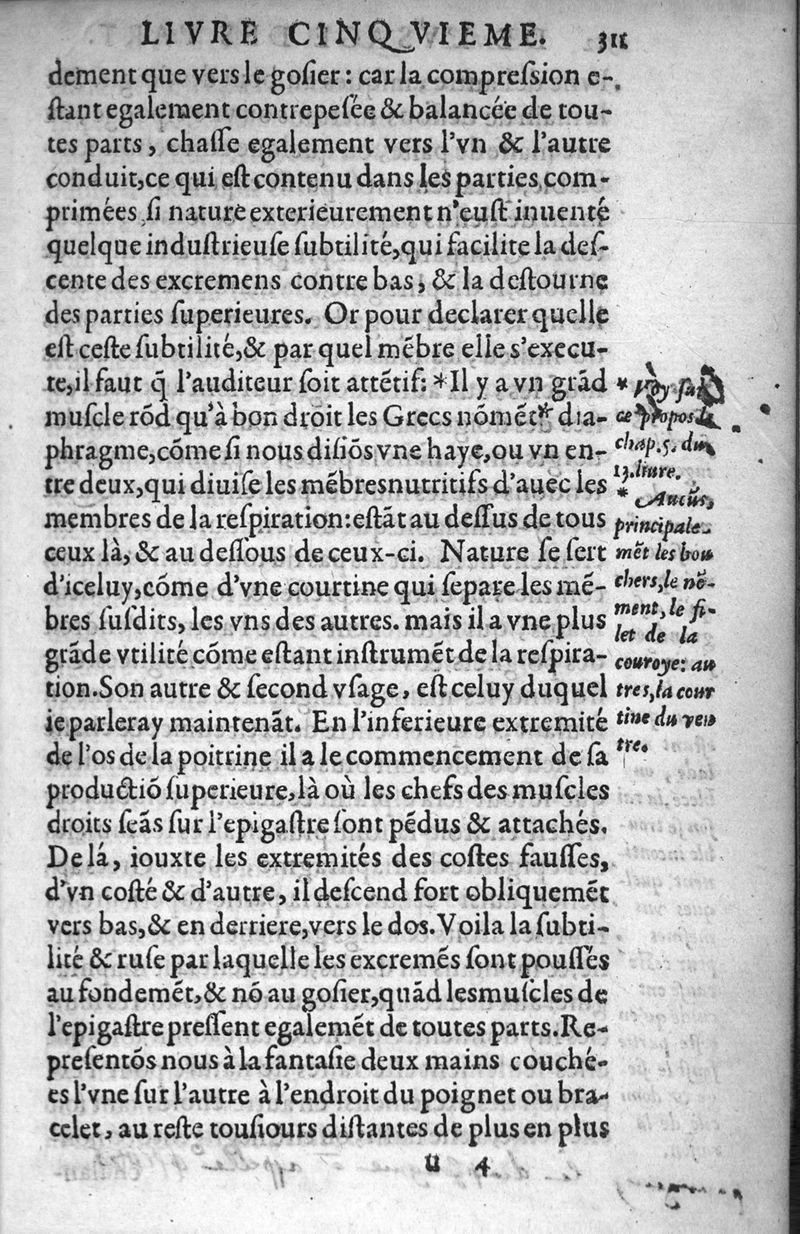 LIVRE CINQVIEME. 311
dement que vers le goſier : car la compreſſion e-
ſtant egalement contrepeſée & balancée de tou-
tes parts, chaſſe egalement vers l'vn & l'autre
conduit, ce qui eſt contenu dans les parties com-
primées, ſi nature exterieurement n'euſt inuenté
quelque induſtrieuſe ſubtilité, qui facilite la deſ-
cente des excremens contre bas, & la deſtourne
des parties ſuperieures. Or pour declarer quelle
eſt ceſte ſubtilité, & par quel mẽbre elle s'execu-
te, il faut q̃ l'auditeur ſoit attẽtif: *Il y a vn grãd
muſcle rõd qu'à bon droit les Grecs nõmẽt* dia-
phragme, cõme ſi nous diſiõs vne haye, ou vn en-
tre deux, qui diuiſe les mẽbres nutritifs d'auec les
membres de la reſpiration: eſtãt au deſſus de tous
ceux là, & au deſſous de ceux-ci. Nature ſe ſert
d'iceluy, cõme d'vne courtine qui ſepare les mẽ-
bres ſuſdits, les vns des autres. mais il a vne plus
grãde vtilité cõme eſtant inſtrumẽt de la reſpira-
tion. Son autre & ſecond vſage, eſt celuy duquel
ie parleray maintenãt. En l'inferieure extremité
de l'os de la poitrine il a le commencement de ſa
productiõ ſuperieure, là où les chefs des muſcles
droits ſeãs ſur l'epigaſtre ſont pẽdus & attachés.
De lá, iouxte les extremités des coſtes fauſſes,
d'vn coſté & d'autre, il deſcend fort obliquemẽt
vers bas, & en derriere, vers le dos. Voila la ſubti-
lité & ruſe par laquelle les excremẽs ſont pouſſés
au fondemẽt, & nõ au goſier, quãd les muſcles de
l'epigaſtre preſſent egalemẽt de toutes parts. Re-
preſentõs nous à la fantaſie deux mains couché-
es l'vne ſur l'autre à l'endroit du poignet ou bra-
celet, au reſte touſiours diſtantes de plus en plus
* voy ſur
ce propos le
chap. 5. du
13. liure.
* Aucũs,
principale-
mẽt les bou
chers, le nõ-
ment, le fi-
let de la
couroye: au
tres, la cour
tine du ven
tre.
u 4